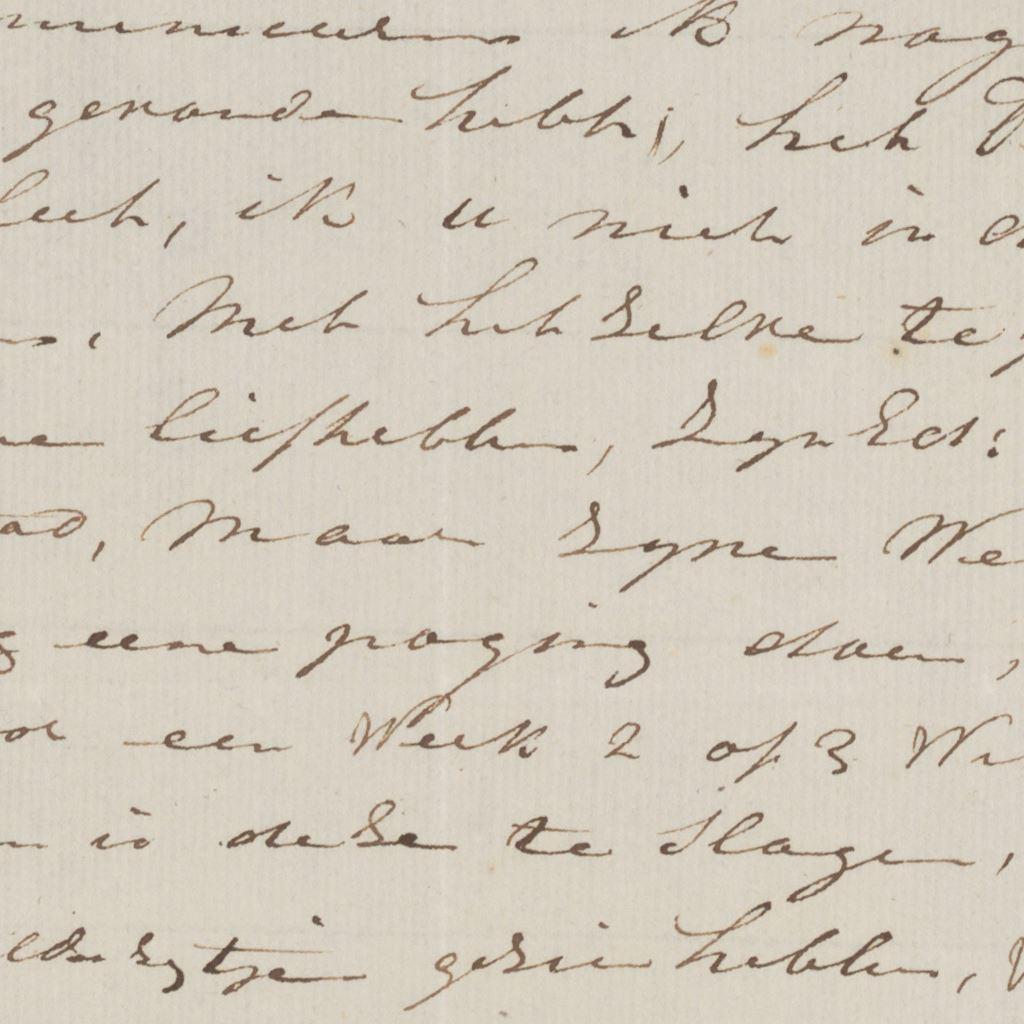 ik nog
gevonden hebb, het
leet, ik u niet in
Met het zelve te
liefhebbers, Zyn Ed:
ad, maar zyne We
eene poging doen,
een Week 2 of 3 We
is deze te slagen,
gezien hebben,